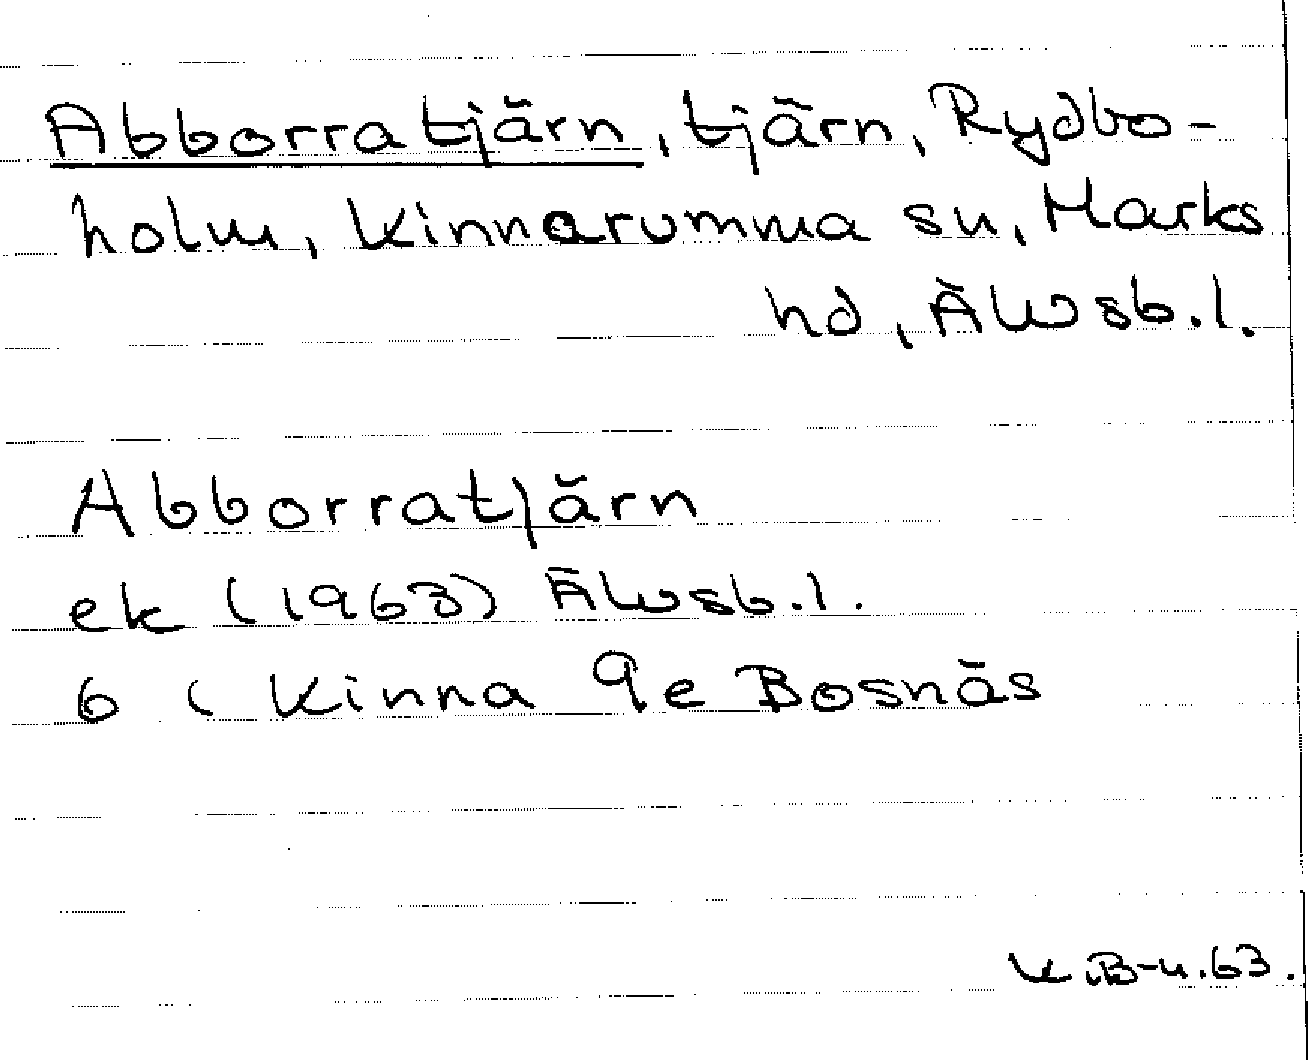 Abborratjärn, tjärn, Rydbo-
holm, Kinnarumma sn, Marks
hd, Älvsb.l.
Abborratjärn
ek (1963) Älvsb.l.
6 C Kinna 9e Bosnäs
K.B-n.63.